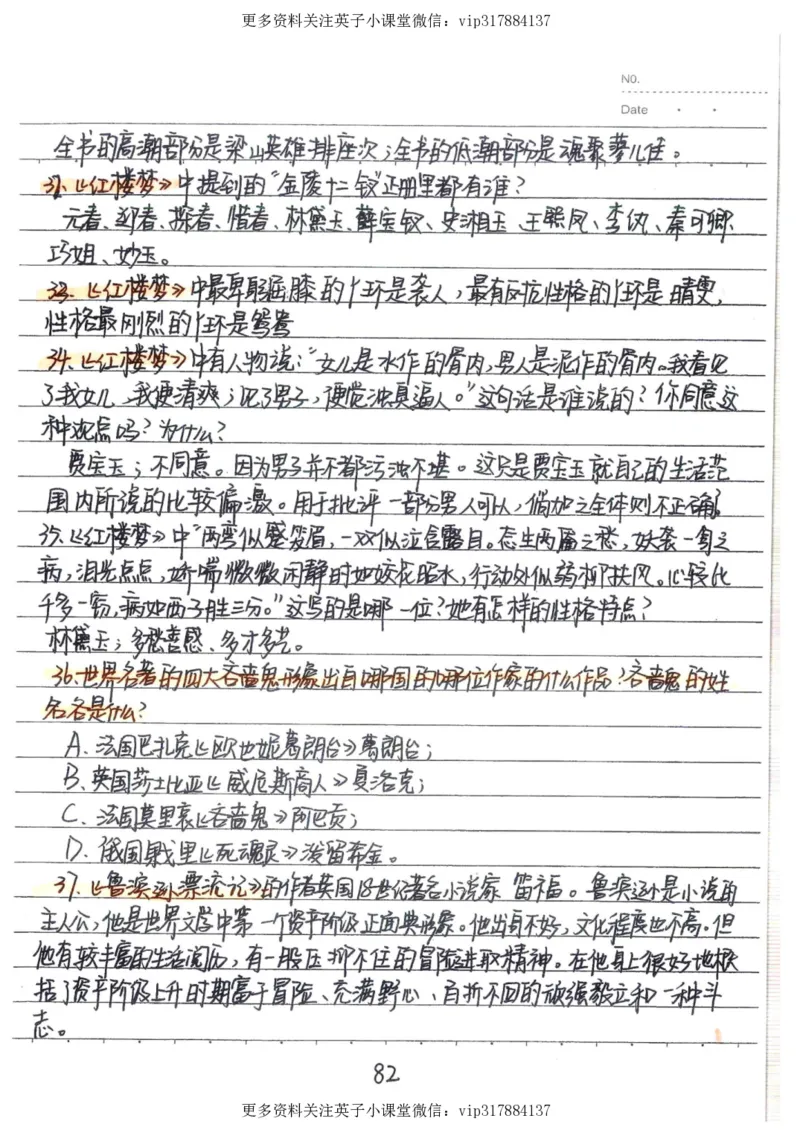 更多资料关注英子小课堂微信：vip317884137
NO.
Date
全书的高潮部分是梁山英雄排座次；全书的低潮部分是魂聚蓼儿洼。
32.《红楼梦》中提到的“金陵十二钗”正册里都有谁？
元春、迎春、探春、惜春、林黛玉、薛宝钗、史湘云、王熙凤、李纨、秦可卿
巧姐、妙玉。
33.《红楼梦》中最卑躬屈膝的丫环是袭人，最有反抗性格的丫环是晴雯，
性格最刚烈的丫环是鸳鸯
34.《红楼梦》中有人物说：“女儿是水作的骨肉，男人是泥作的骨肉。我看见
了我女儿，我便清爽；见了男子，便觉浊臭逼人。”这句话是谁说的？你同意这
种观点吗？为什么？
贾宝玉；不同意。因为男子并不都污浊不堪。这只是贾宝玉就自己的生活范
围内所说的比较偏激。用于批评一部分男人可以，倘加之全体则不正确。
35.《红楼梦》中“两弯似蹙笼眉，一双似泣含露目。态生两靥之愁，娇袭一身之
病，泪光点点，娇喘微微。闲静时如姣花照水，行动处似弱柳扶风。心较比
干多一窍，病如西子胜三分。”这写的是哪一位？她有怎样的性格特点？
林黛玉；多愁善感、多才多艺。
36.世界名著的四大吝啬鬼形象出自哪国的哪位作家的什么作品？吝啬鬼的姓
名各是什么？
A.法国巴扎克《欧也妮葛朗台》葛朗台；
B.英国莎士比亚《威尼斯商人》夏洛克；
C.法国莫里哀《吝啬鬼》阿巴贡；
D.俄国果戈里《死魂灵》泼留希金。
37.《鲁滨逊漂流记》的作者英国18世纪著名小说家笛福。鲁滨逊是小说的
主人公，他是世界文学中第一个资产阶级正面典形象。他出身不好，文化程度也不高。但
他有较丰富的生活阅历，有一股压抑不住的冒险进取精神。在他身上很好地概
括了资产阶级上升时期富于冒险、充满野心、百折不回的顽强毅立和一种斗
志。
82
更多资料关注英子小课堂微信：vip317884137